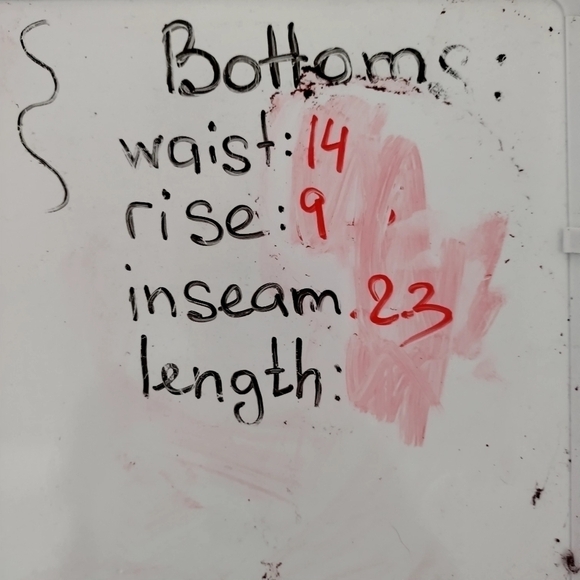 Bottoms:
waist: 14
rise: 9
inseam. 23
length: